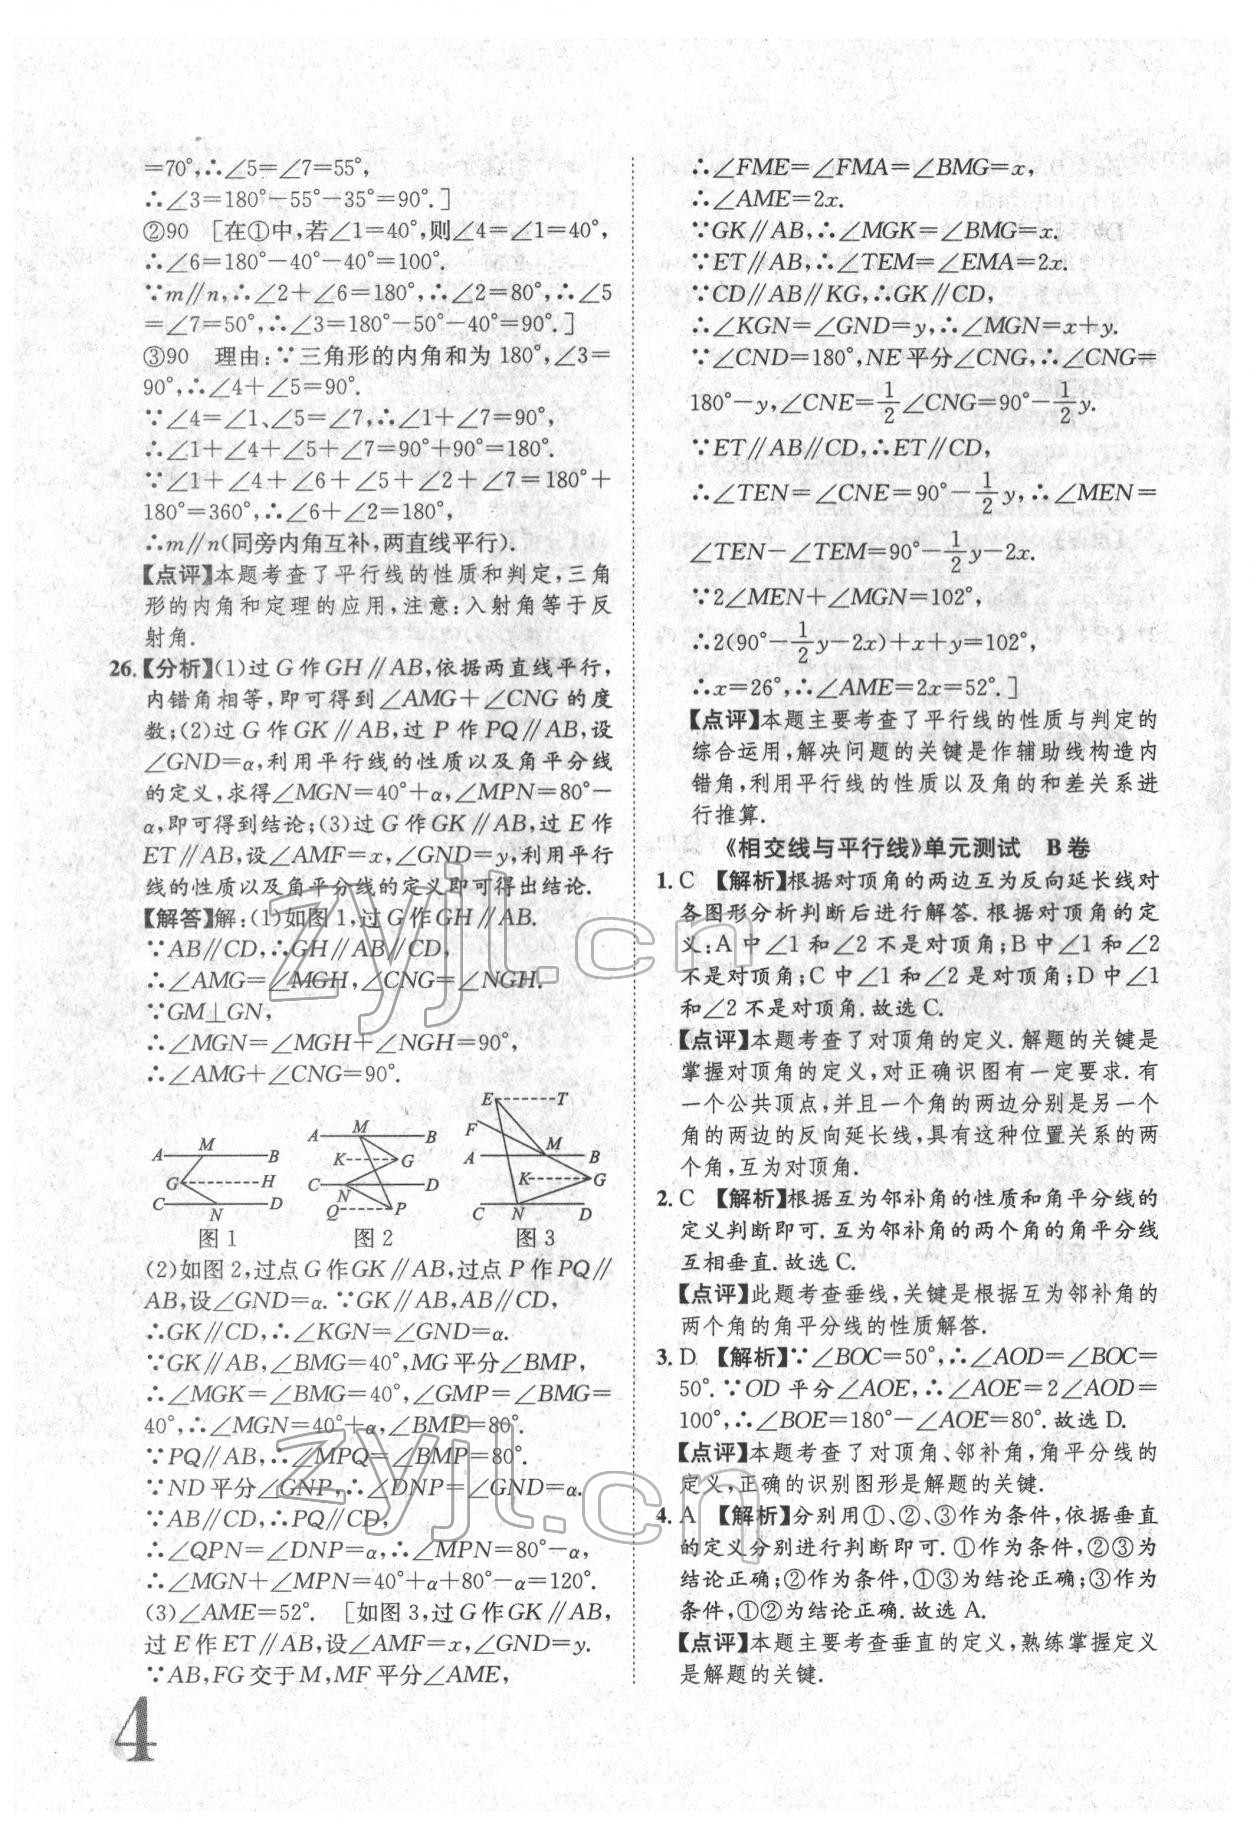 =70°,∴∠5=∠7=55°,
∴∠3=180°-55°-35°=90°.]
②90 [在①中,若∠1=40°,则∠4=∠1=40°,
∴∠6=180°-40°-40°=100°.
∵m∥n,∴∠2+∠6=180°,∴∠2=80°,∴∠5
=∠7=50°,∴∠3=180°-50°-40°=90°.]
③90 理由:∵三角形的内角和为180°,∠3=
90°,∴∠4+∠5=90°.
∵∠4=∠1、∠5=∠7,∴∠1+∠7=90°,
∴∠1+∠4+∠5+∠7=90°+90°=180°.
∵∠1+∠4+∠6+∠5+∠2+∠7=180°+
180°=360°,∴∠6+∠2=180°,
∴m∥n(同旁内角互补,两直线平行).
【点评】本题考查了平行线的性质和判定,三角
形的内角和定理的应用,注意:入射角等于反
射角.
26.【分析】(1)过G作GH∥AB,依据两直线平行,
内错角相等,即可得到∠AMG+∠CNG的度
数;(2)过G作GK∥AB,过P作PQ∥AB,设
∠GND=α,利用平行线的性质以及角平分线
的定义,求得∠MGN=40°+α,∠MPN=80°-
α,即可得到结论;(3)过G作GK∥AB,过E作
ET∥AB,设∠AMF=x,∠GND=y,利用平行
线的性质以及角平分线的定义即可得出结论.
【解答】解:(1)如图1,过G作GH∥AB.
∵AB∥CD,∴GH∥AB∥CD,
∴∠AMG=∠MGH,∠CNG=∠NGH.
∵GM⊥GN,
∴∠MGN=∠MGH+∠NGH=90°,
∴∠AMG+∠CNG=90°.
A M B G H C N D
图1
A M B K G C N D Q P
图2
E T F A M B K G C N D
图3
(2)如图2,过点G作GK∥AB,过点P作PQ∥
AB,设∠GND=α.∵GK∥AB,AB∥CD,
∴GK∥CD,∴∠KGN=∠GND=α.
∵GK∥AB,∠BMG=40°,MG平分∠BMP,
∴∠MGK=∠BMG=40°,∠GMP=∠BMG=
40°,∴∠MGN=40°+α,∠BMP=80°.
∵PQ∥AB,∴∠MPQ=∠BMP=80°.
∵ND平分∠GNP,∴∠DNP=∠GND=α.
∵AB∥CD,∴PQ∥CD,
∴∠QPN=∠DNP=α,∴∠MPN=80°-α,
∴∠MGN+∠MPN=40°+α+80°-α=120°.
(3)∠AME=52°. [如图3,过G作GK∥AB,
过E作ET∥AB,设∠AMF=x,∠GND=y.
∵AB,FG交于M,MF平分∠AME,
4
∴∠FME=∠FMA=∠BMG=x,
∴∠AME=2x.
∵GK∥AB,∴∠MGK=∠BMG=x.
∵ET∥AB,∴∠TEM=∠EMA=2x.
∵CD∥AB∥KG,∴GK∥CD,
∴∠KGN=∠GND=y,∴∠MGN=x+y.
∵∠CND=180°,NE平分∠CNG,∴∠CNG=
180°-y,∠CNE=1/2∠CNG=90°-1/2y.
∵ET∥AB∥CD,∴ET∥CD,
∴∠TEN=∠CNE=90°-1/2y,∴∠MEN=
∠TEN-∠TEM=90°-1/2y-2x.
∵2∠MEN+∠MGN=102°,
∴2(90°-1/2y-2x)+x+y=102°,
∴x=26°,∴∠AME=2x=52°.]
【点评】本题主要考查了平行线的性质与判定的
综合运用,解决问题的关键是作辅助线构造内
错角,利用平行线的性质以及角的和差关系进
行推算.
《相交线与平行线》单元测试 B卷
1. C 【解析】根据对顶角的两边互为反向延长线对
各图形分析判断后进行解答.根据对顶角的定
义:A中∠1和∠2不是对顶角;B中∠1和∠2
不是对顶角;C中∠1和∠2是对顶角;D中∠1
和∠2不是对顶角.故选C.
【点评】本题考查了对顶角的定义.解题的关键是
掌握对顶角的定义,对正确识图有一定要求.有
一个公共顶点,并且一个角的两边分别是另一个
角的两边的反向延长线,具有这种位置关系的两
个角,互为对顶角.
2. C 【解析】根据互为邻补角的性质和角平分线的
定义判断即可.互为邻补角的两个角的角平分线
互相垂直.故选C.
【点评】此题考查垂线,关键是根据互为邻补角的
两个角的角平分线的性质解答.
3. D 【解析】∵∠BOC=50°,∴∠AOD=∠BOC=
50°.∵OD平分∠AOE,∴∠AOE=2∠AOD=
100°,∴∠BOE=180°-∠AOE=80°.故选D.
【点评】本题考查了对顶角、邻补角,角平分线的
定义,正确的识别图形是解题的关键.
4. A 【解析】分别用①、②、③作为条件,依据垂直
的定义分别进行判断即可.①作为条件,②③为
结论正确;②作为条件,①③为结论正确;③作为
条件,①②为结论正确.故选A.
【点评】本题主要考查垂直的定义,熟练掌握定义
是解题的关键.
zyjl.cn
zyjl.cn